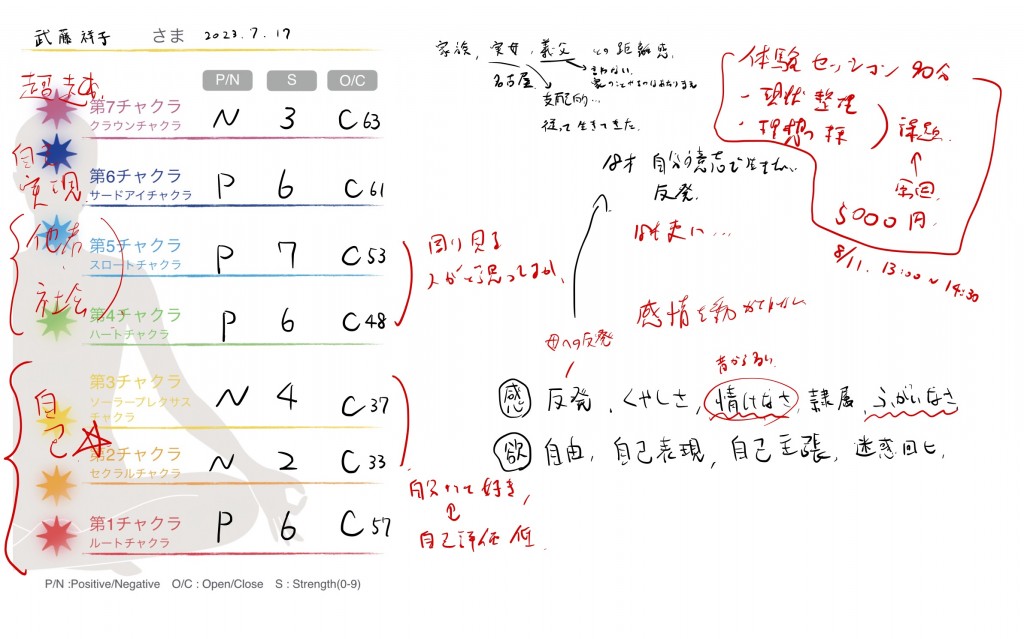 武藤祥子 さま 2023.7.17
P/N S O/C
超越
第7チャクラ
クラウンチャクラ
N 3 C63
自己実現
第6チャクラ
サードアイチャクラ
P 6 C61
他者・社会
第5チャクラ
スロートチャクラ
P 7 C53
第4チャクラ
ハートチャクラ
P 6 C48
周り見る
人がどう思ってるか
自己
第3チャクラ
ソーラープレクサス
チャクラ
N 4 C37
第2チャクラ
セクラルチャクラ
N 2 C33
自分って好き
自己評価 低
第1チャクラ
ルートチャクラ
P 6 C57
P/N :Positive/Negative O/C : Open/Close S : Strength(0-9)
家族、実母、義父 との距離感
名古屋
支配的…
従って生きてきた.
18才 自分の意志で
反発
感情を動かす
母への反発
昔からある
感 反発、くやしさ、情けなさ、隷属、ふがいなさ
欲 自由、自己表現、自己主張、迷惑回ヒ、
体験セッション 90分
・現状整理
・理想
課題
↑
5000円
8/11. 13:00〜14:30